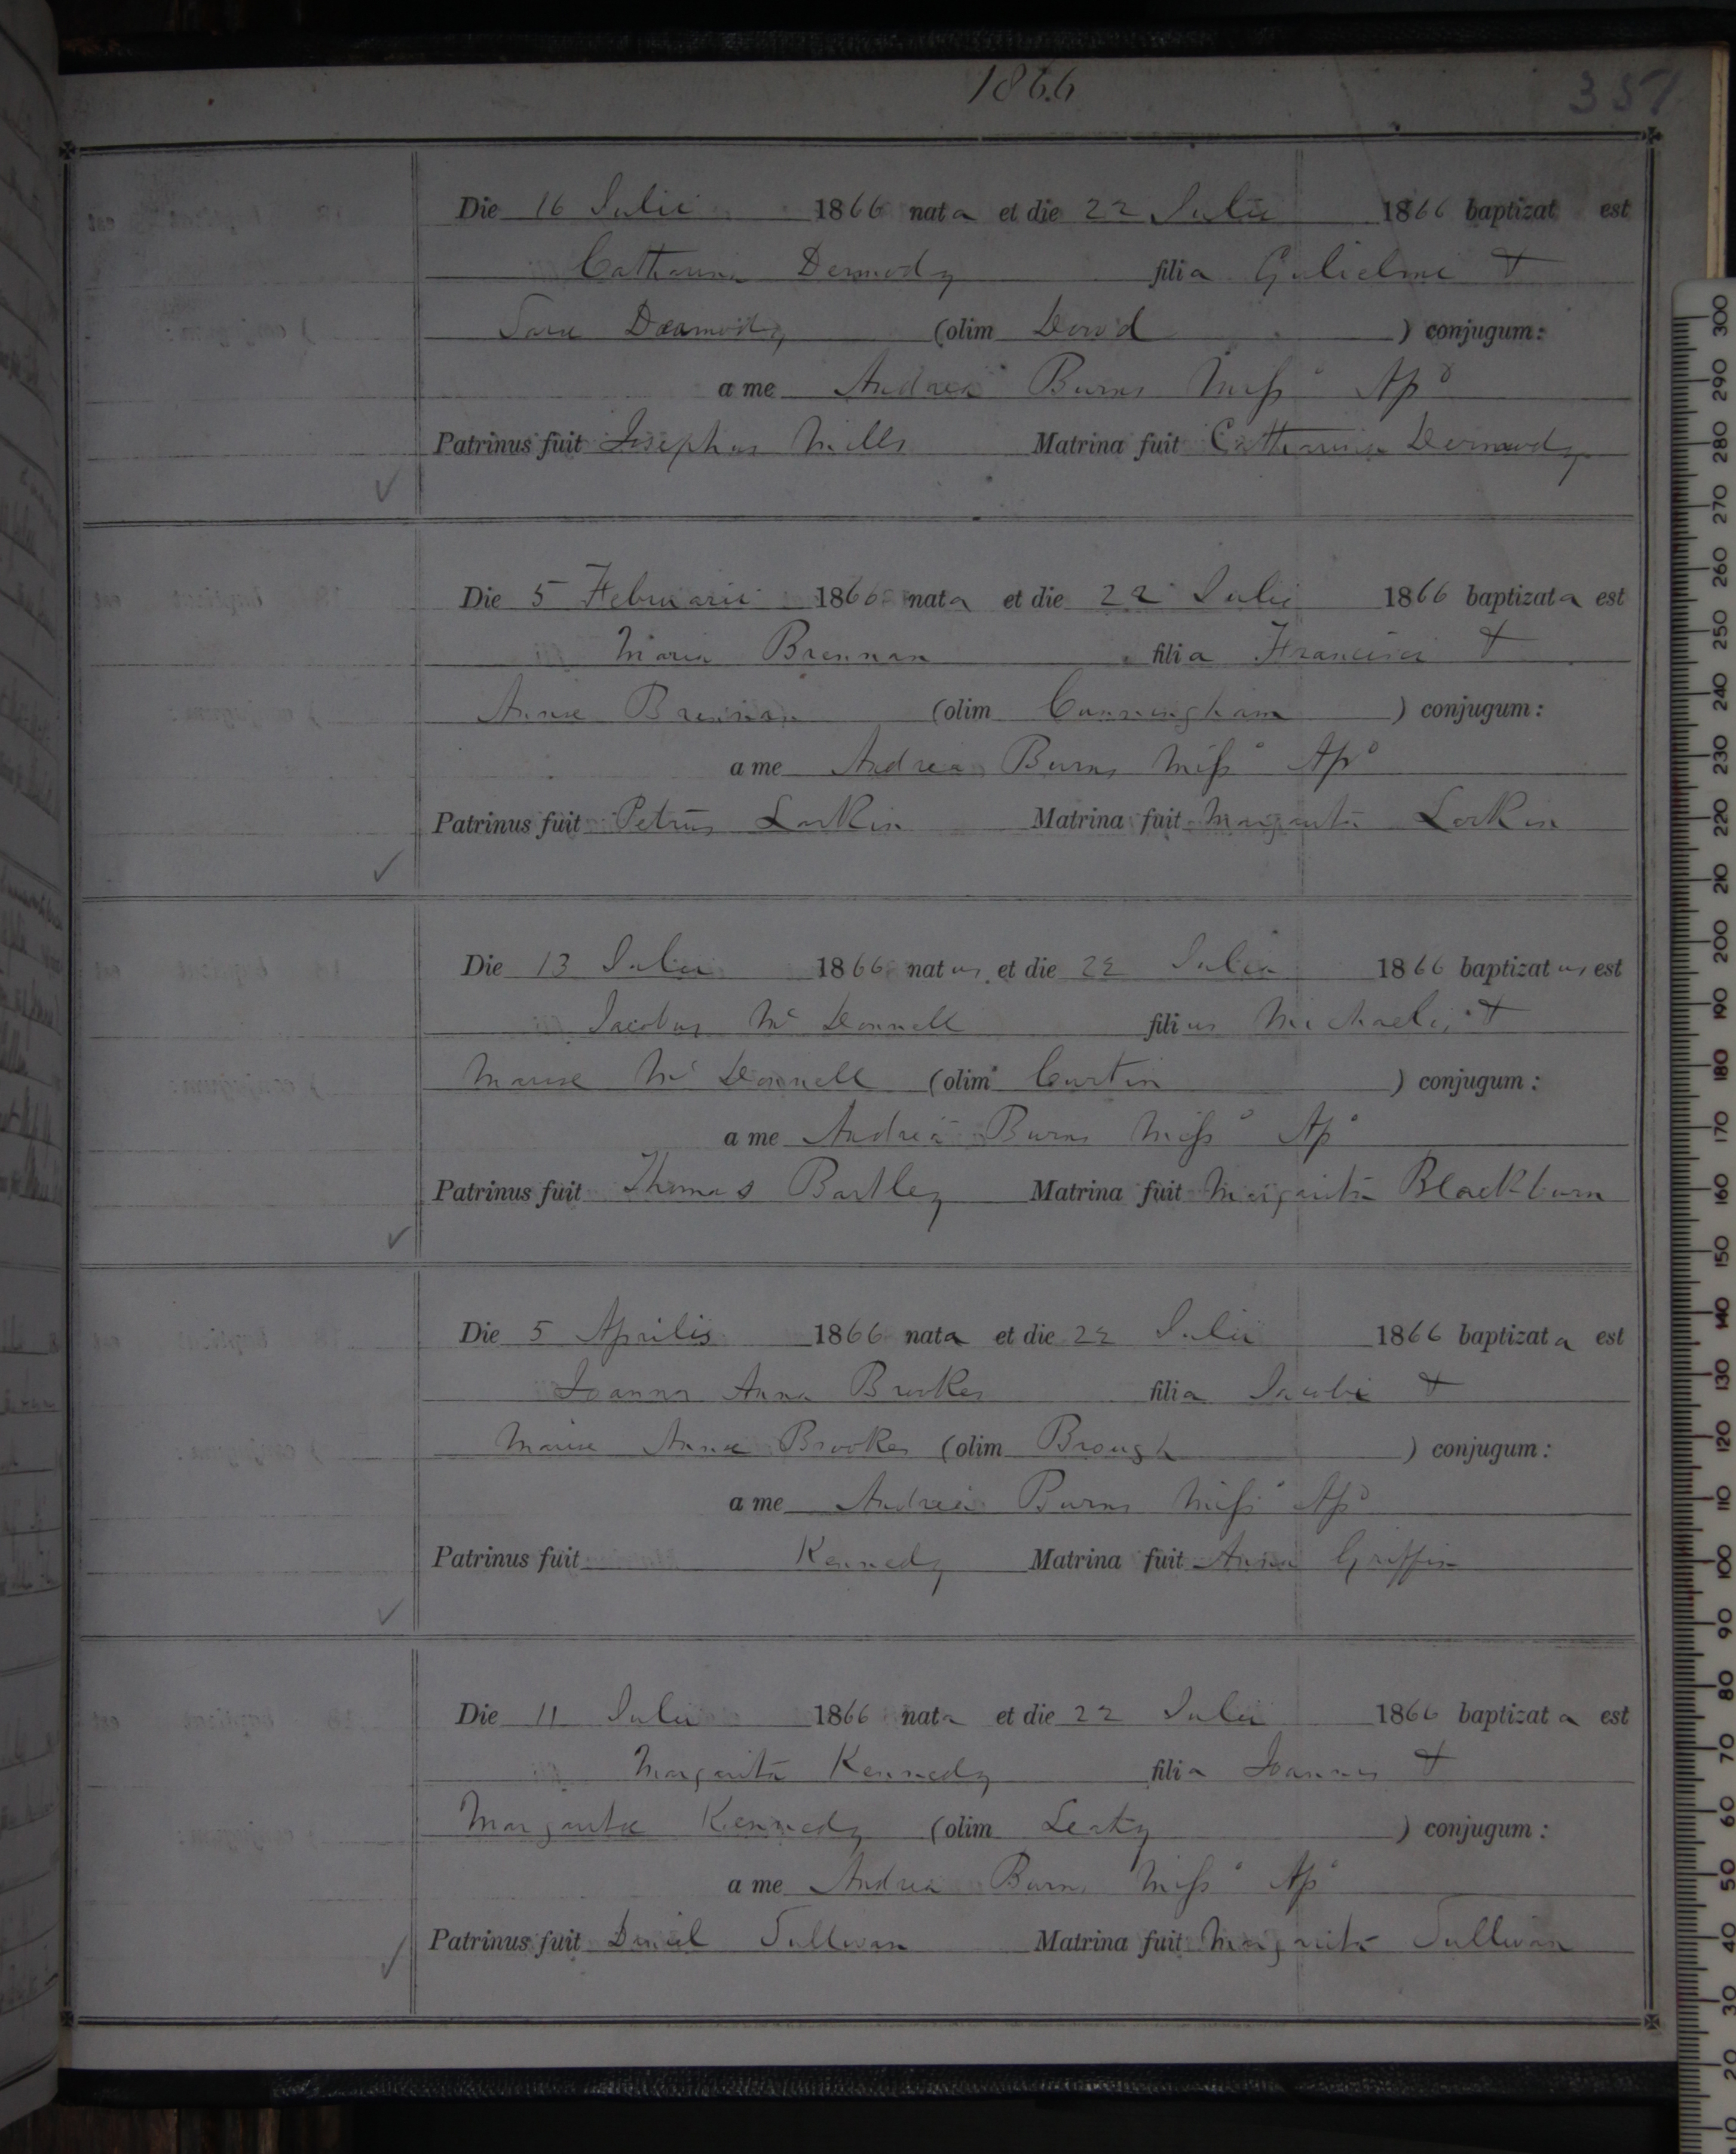 1866
351
Die 16 Julii 1866 nata et die 22 Julii 1866 baptizat est
Catharina Dermody filia Gulielmi &
Sarae Dermody (olim Dowd ) conjugum:
a me Andrea Burns Miss° Ap°
Patrinus fuit Josephus Mills Matrina fuit Catharina Dermody
Die 5 Februarii 1866 nata et die 22 Julii 1866 baptizata est
Maria Brennan filia Francisci &
Annae Brennan (olim Cunningham ) conjugum:
a me Andrea Burns Miss° Ap°
Patrinus fuit Petrus Larkin Matrina fuit Margarita Larkin
Die 13 Julii 1866 natus et die 22 Julii 1866 baptizatus est
Jacobus Mc Donnell filius Michaelis &
Mariae Mc Donnell (olim Curtin ) conjugum:
a me Andrea Burns Miss° Ap°
Patrinus fuit Thomas Bartley Matrina fuit Margarita Blackburn
Die 5 Aprilis 1866 nata et die 22 Julii 1866 baptizata est
Joanna Anna Brookes filia Jacobi &
Mariae Annae Brookes (olim Brough ) conjugum:
a me Andrea Burns Miss° Ap°
Patrinus fuit Kennedy Matrina fuit Anna Griffin
Die 11 Julii 1866 nata et die 22 Julii 1866 baptizata est
Margarita Kennedy filia Joannis &
Margaritae Kennedy (olim Leahy ) conjugum:
a me Andrea Burns Miss° Ap°
Patrinus fuit Daniel Sullivan Matrina fuit Margarita Sullivan